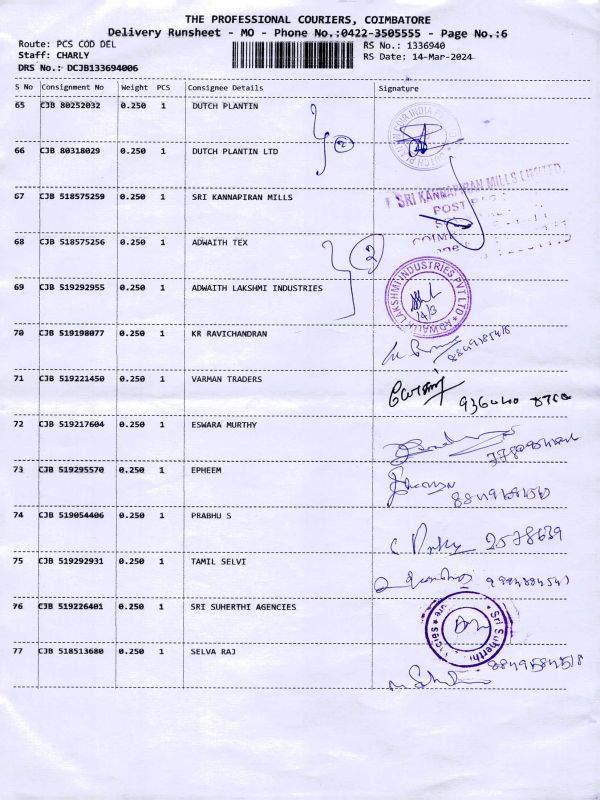 THE PROFESSIONAL COURIERS, COIMBATORE
Delivery Runsheet - MO - Phone No.:0422-3505555 - Page No.:6
Route: PCS COD DEL RS No.: 1336940
Staff: CHARLY RS Date: 14-Mar-2024
DRS No.: DCJB133694006
S No Consignment No Weight PCS Consignee Details Signature
65 CJB 80252032 0.250 1 DUTCH PLANTIN
2
66 CJB 80318029 0.250 1 DUTCH PLANTIN LTD
67 CJB 518575259 0.250 1 SRI KANNAPIRAN MILLS
SRI KANNAPIRAN MILLS LIMITED
POST
68 CJB 518575256 0.250 1 ADWAITH TEX
2
69 CJB 519292955 0.250 1 ADWAITH LAKSHMI INDUSTRIES
ADWAITH LAKSHMI INDUSTRIES PVT LTD
14/3
70 CJB 519198077 0.250 1 KR RAVICHANDRAN
71 CJB 519221450 0.250 1 VARMAN TRADERS
72 CJB 519217604 0.250 1 ESWARA MURTHY
73 CJB 519295570 0.250 1 EPHEEM
74 CJB 519054406 0.250 1 PRABHU S
2578639
75 CJB 519292931 0.250 1 TAMIL SELVI
76 CJB 519226401 0.250 1 SRI SUHERTHI AGENCIES
Sri Suherthi
77 CJB 518513680 0.250 1 SELVA RAJ